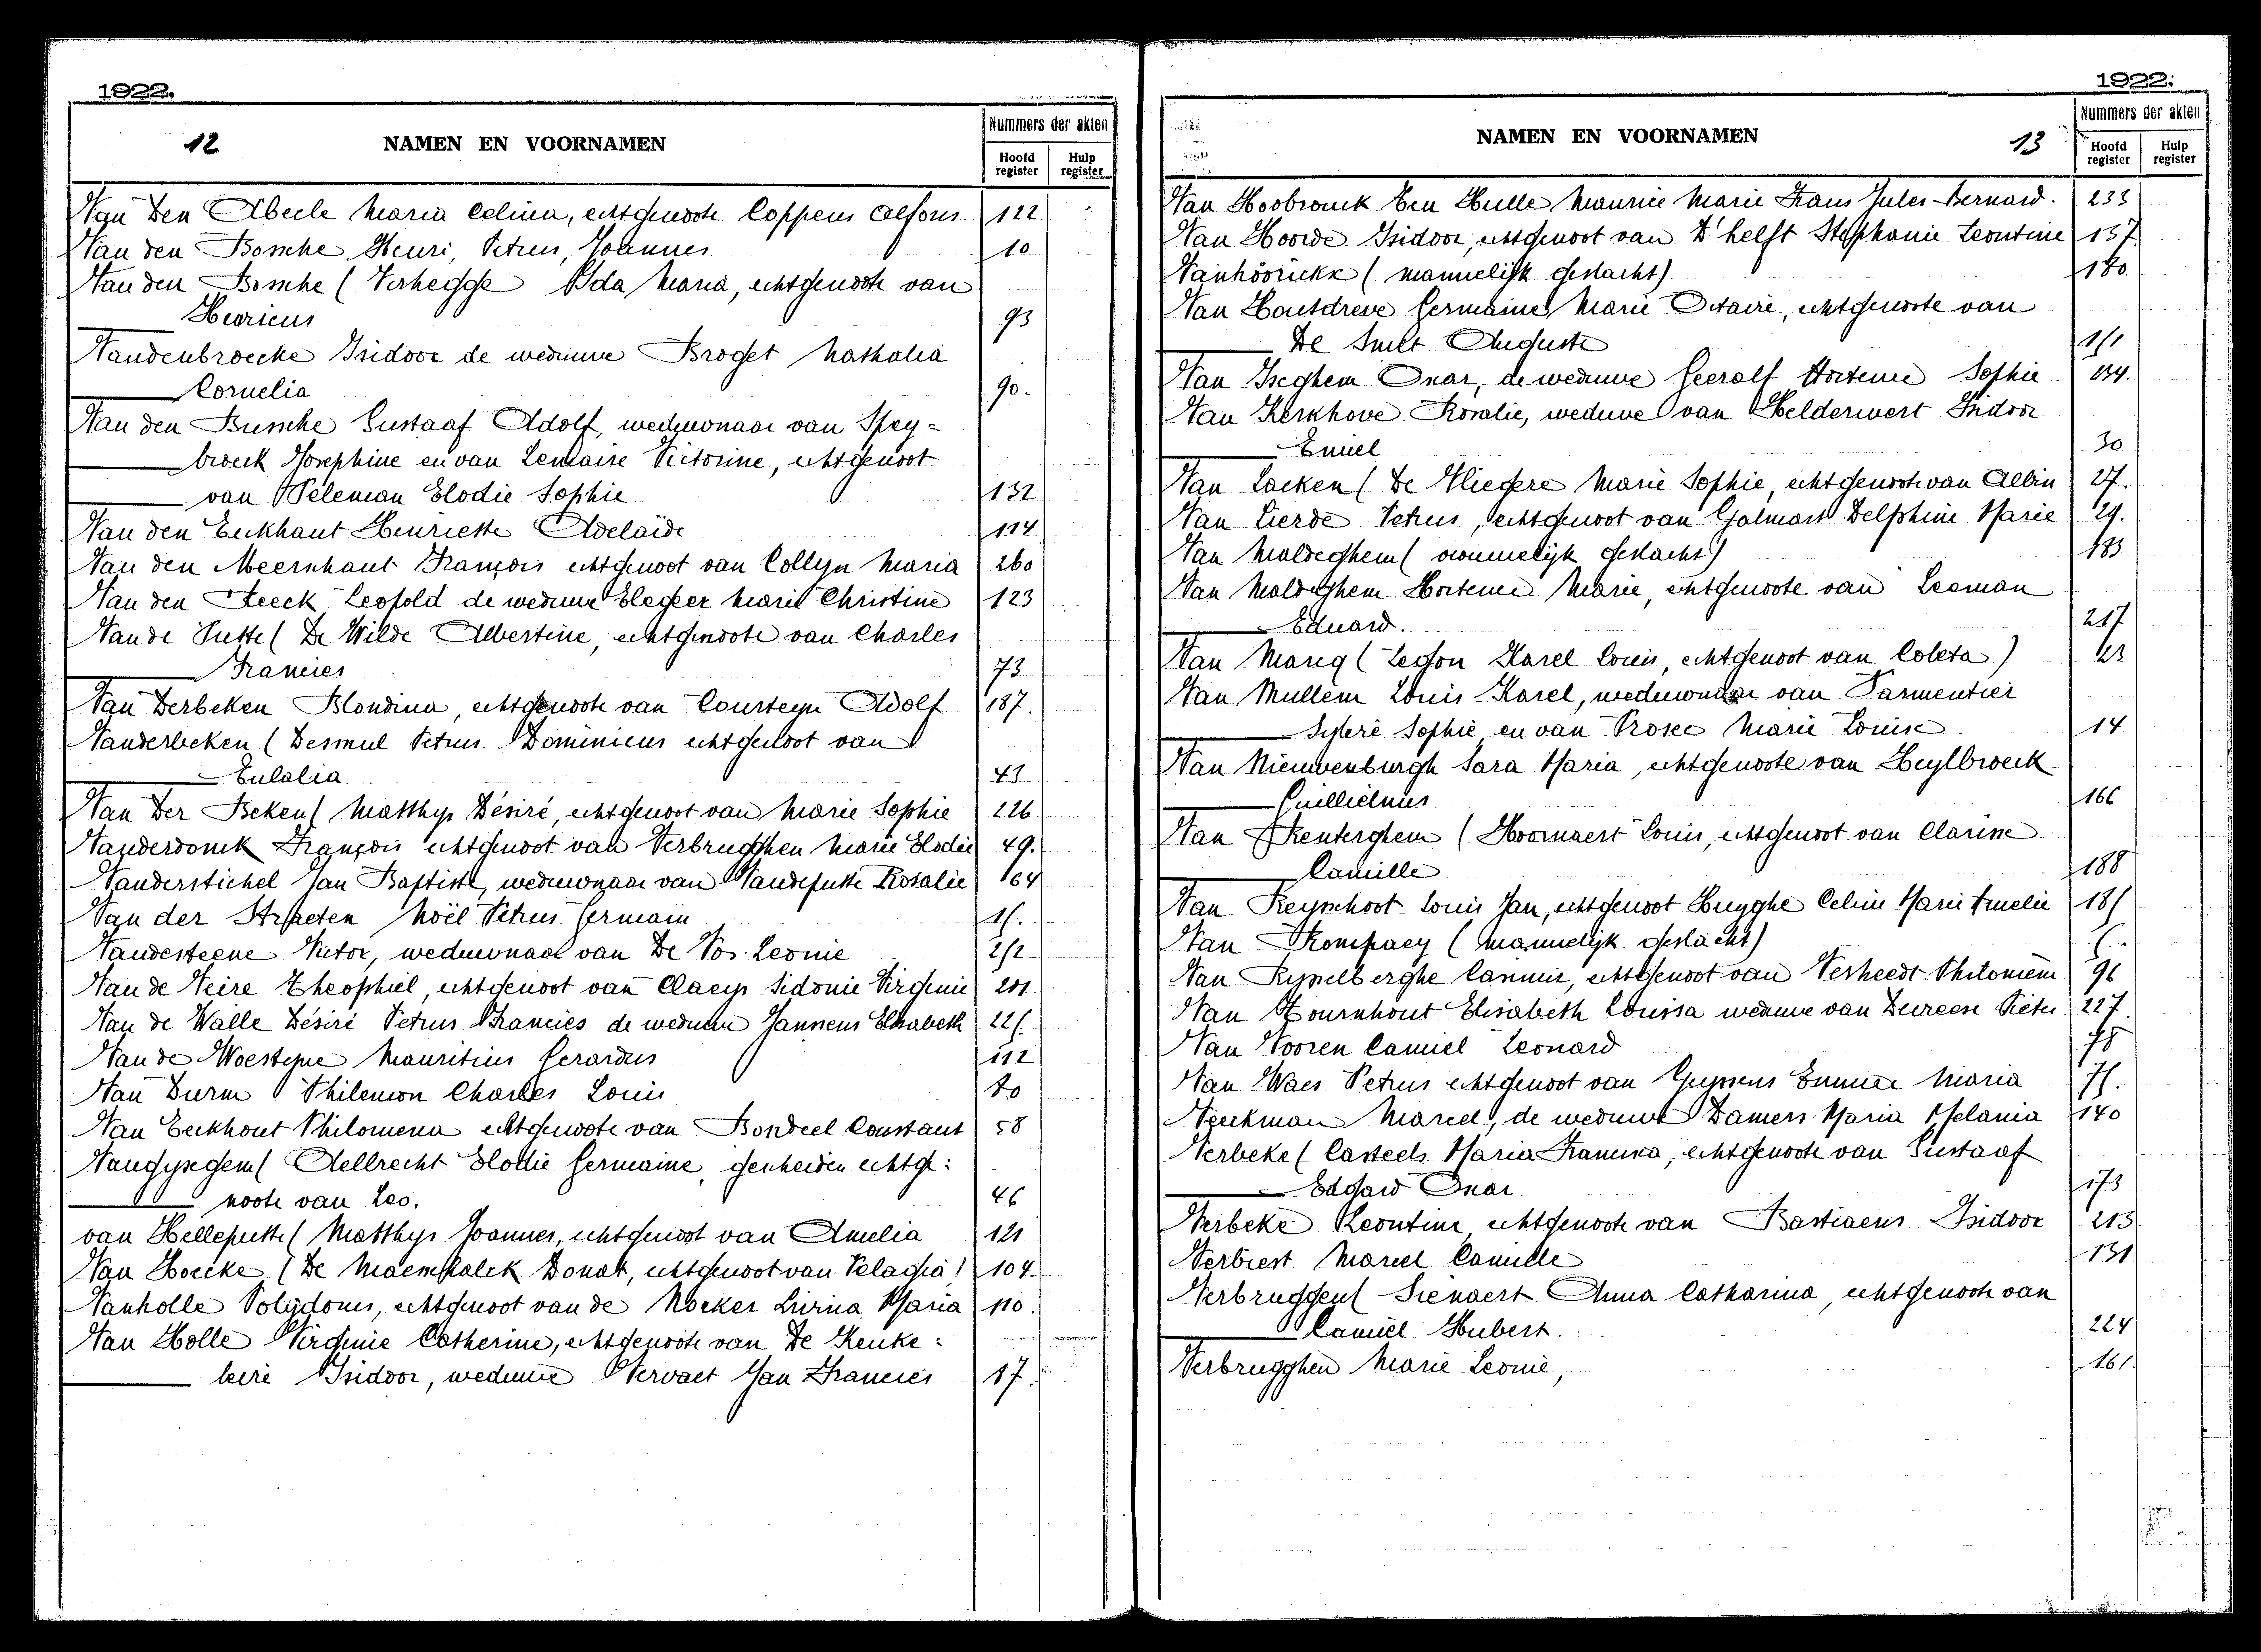 1922.
12 NAMEN EN VOORNAMEN
Nummers der akten
Hoofd register Hulp register
Van den Abeele Maria Celina, echtgenoote Coppens Alfons 122
Van den Bossche Henri, Petrus, Joannes 10
Van den Bossche (Verhegge Ida Maria, echtgenoote van
Henricus 93
Vandenbroecke Isidoor de weduwe Broget Nathalia
Cornelia 90.
Van den Bussche Gustaaf Adolf, weduwnaar van Spey-
broeck Josephine en van Lemaire Victorine, echtgenoot
van Peleman Elodie Sophie 132
Van den Eeckhaut Henriette Adelaïde 114
Van den Meerschaut François echtgenoot van Collyn Maria 260
Van den Steeck Leopold de weduwe Elegeer Marie Christine 123
Van de Putte (De Wilde Albertine, echtgenoote van Charles
Francies 73
Van Derbeken Blondina, echtgenoote van Courteyn Adolf 187.
Vanderbeken (Desmul Petrus Dominicus echtgenoot van
Eulalia 43
Van Der Beken (Matthys Désiré, echtgenoot van Marie Sophie 226
Vanderdonck François echtgenoot van Verbrugghen Marie Elodie 49.
Vanderstichel Jan Baptist, weduwnaar van Vandeputte Rosalie 164
Van der Straeten Noël Petrus Germain 15.
Vandesteene Victor, weduwnaar van De Vos Leonie 252
Van de Veire Theophiel, echtgenoot van Claeys Sidonie Virginie 201
Van de Walle Désiré Petrus Francies de weduwe Janssens Elisabeth 225
Van de Woestyne Mauritius Gerardus 112
Van Durm Philemon Charles Louis 80
Van Eeckhout Philomena echtgenoote van Bondeel Constant 58
Vangysegem (Aellrecht Elodie Germaine, gescheiden echtge:
noote van Leo. 46
van Helleputte (Matthys Joannes, echtgenoot van Amelia 121
Van Hoecke (De Maerschalck Donat, echtgenoot van Pelagia) 104.
Vanholle Polydorus, echtgenoot van de Nocker Livina Maria 110.
Van Holle Virginie Catherine, echtgenoote van De Keuke:
leire Isidoor, weduwe Vervaet Jan Francies 17.
1922.
NAMEN EN VOORNAMEN 13
Nummers der akten
Hoofd register Hulp register
Van Hoobrouck ten Hulle Maurice Marie Frans Jules Bernard. 233
Van Hoorde Isidoor, echtgenoot van D'helft Stephanie Leontine 157
Vanhoorickx (mannelijk geslacht) 180
Van Houtdreve Germaine Marie Octavie, echtgenoote van
De Smet Auguste 151
Van Iseghem Omar, de weduwe Geeraelt Hortense Sophie 134.
Van Kerkhove Rosalie, weduwe van Helderwert Isidoor
Emiel 30
Van Laeken (De Vliegere Marie Sophie, echtgenoote van Albin 27.
Van Lierde Petrus, echtgenoot van Galmart Delphine Marie 29.
Van Maldeghem (vrouwelijk geslacht) 183
Van Maldeghem Hortense Marie, echtgenoote van Leeman
Eduard. 217
Van Marcq (Legon Karel Louis, echtgenoot van Coleta)
Van Mullem Louis Karel, weduwnaar van Parmentier
Sylvie Sophie en van Prosec Marie Louise 14
Van Nieuwenburgh Sara Maria, echtgenoote van Heylbroeck
Guillielmus 166
Van Renterghem (Hoornaert Louis, echtgenoot van Clarisse
Camille 188
Van Reyschoot Louis Jan, echtgenoot Huyghe Celine Marie Amelie 185
Van Rompaey (Mannelijk geslacht) 5.
Van Rysselberghe Casimir, echtgenoot van Verheedt Philomène 96
Van Tournhout Elisabeth Louisa weduwe van Dureen Pieter 227.
Van Vooren Camiel Leonard 78
Van Waes Petrus echtgenoot van Gyssens Emma Maria 75.
Veeckman Marcel, de weduwe Damers Maria Melania 140
Verbeke (Casteels Maria Francisca, echtgenoote van Gustaaf
Edgard Omar 173
Verbeke Leontine echtgenoote van Bastiaens Isidoor 213
Verbiest Marcel Camille 131
Verbruggen (Sienaert Anna Catharina, echtgenoote van
Camiel Hubert. 224
Verbrugghen Marie Leonie, 161